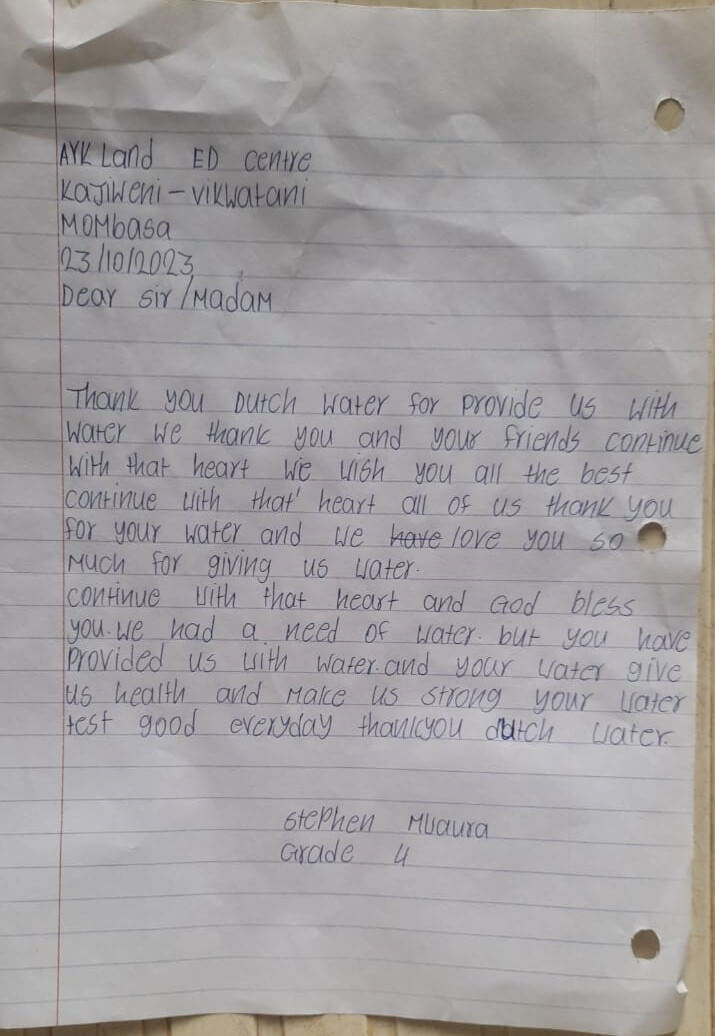 AYK Land ED centre
Kajiweni - vikwatani
Mombasa
23/10/2023
Dear sir/Madam
Thank you Dutch water for provide us with
water we thank you and your friends continue
with that heart we wish you all the best
continue with that' heart all of us thank you
for your water and we have love you so
much for giving us water.
continue with that heart and God bless
you. we had a need of water. but you have
provided us with water. and your water give
us health and make us strong your water
test good everyday thankyou dutch water.
Stephen Mwaura
Grade 4